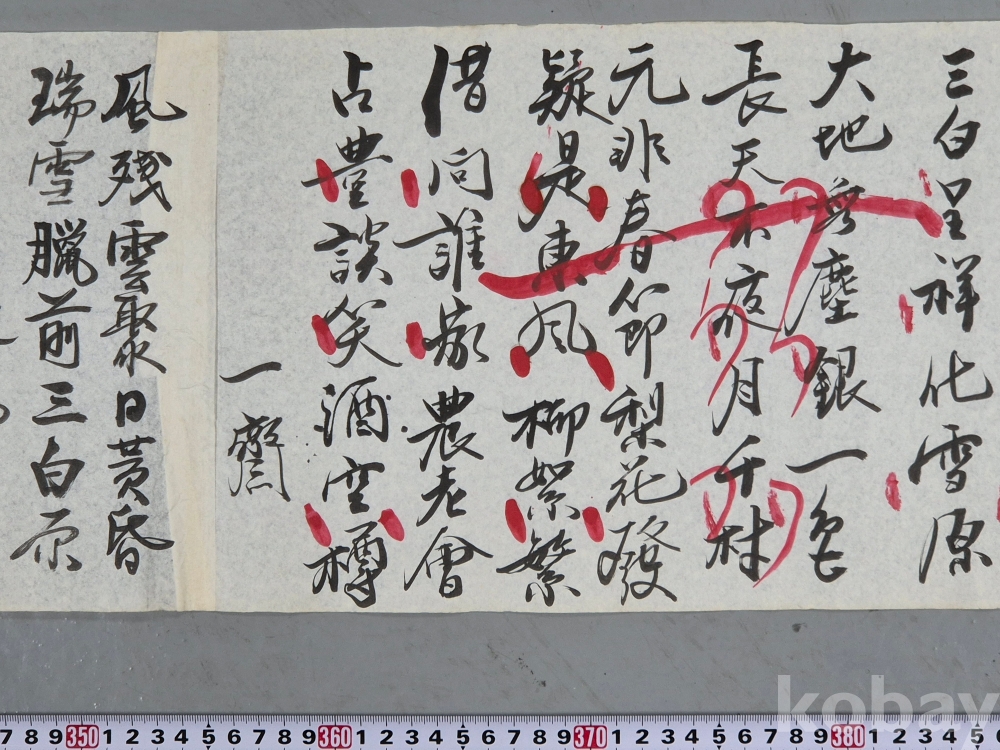 三白呈祥化雪原
大地無塵銀一色
長天不夜月千林
元非春節梨花發
疑是東風柳絮繁
借問誰家農老會
占豊談笑酒空樽
一齋
風残雲聚日黄昏
瑞雪臘前三白原
7 8 9 350 1 2 3 4 5 6 7 8 9 360 1 2 3 4 5 6 7 8 9 370 1 2 3 4 5 6 7 8 9 380 1 2 3 4 5
kobay